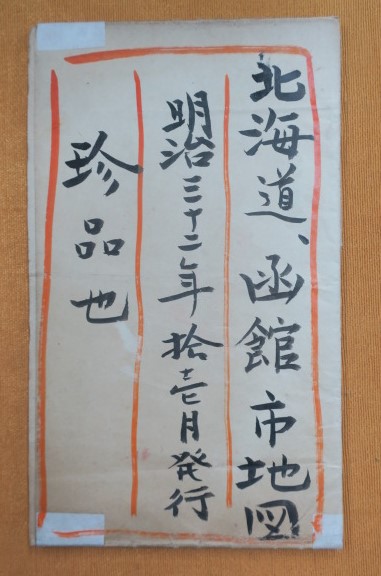 北海道、函館市地図
明治三十二年拾壱月発行
珍品也